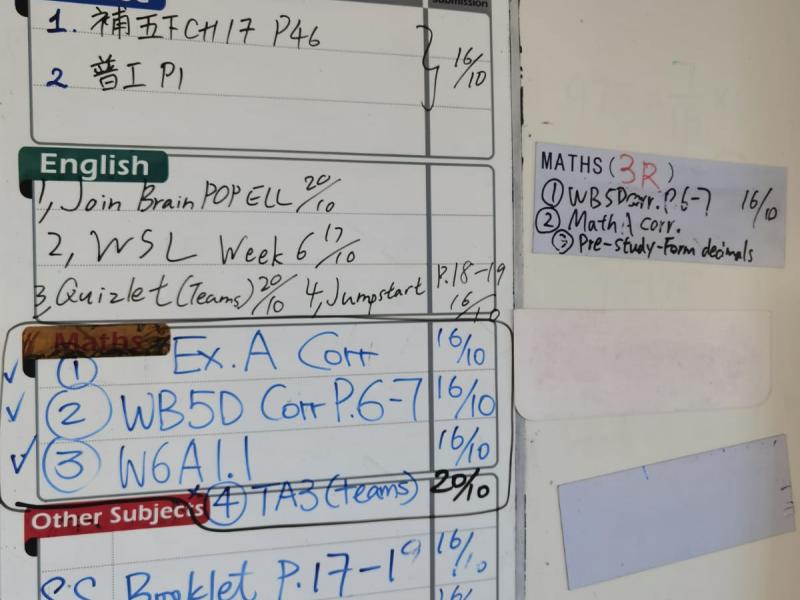 Submission
1. 補五下CH17 P46 16/10
2 普工 P1
English
1, Join Brain POP ELL 20/10
2, WSL Week 6 17/10
3, Quizlet (Teams) 20/10 4, Jumpstart P.18-19 16/10
Maths
① Ex. A Corr 16/10
② WB5D Corr P.6-7 16/10
③ W6A1.1 16/10
* ④ TA3 (teams) 20/10
Other Subjects
S.S Booklet P.17-19 16/10
16/
MATHS (3R)
① WB5D corr. P.6-7 16/10
② Math A Corr.
③ Pre-study-Form decimals